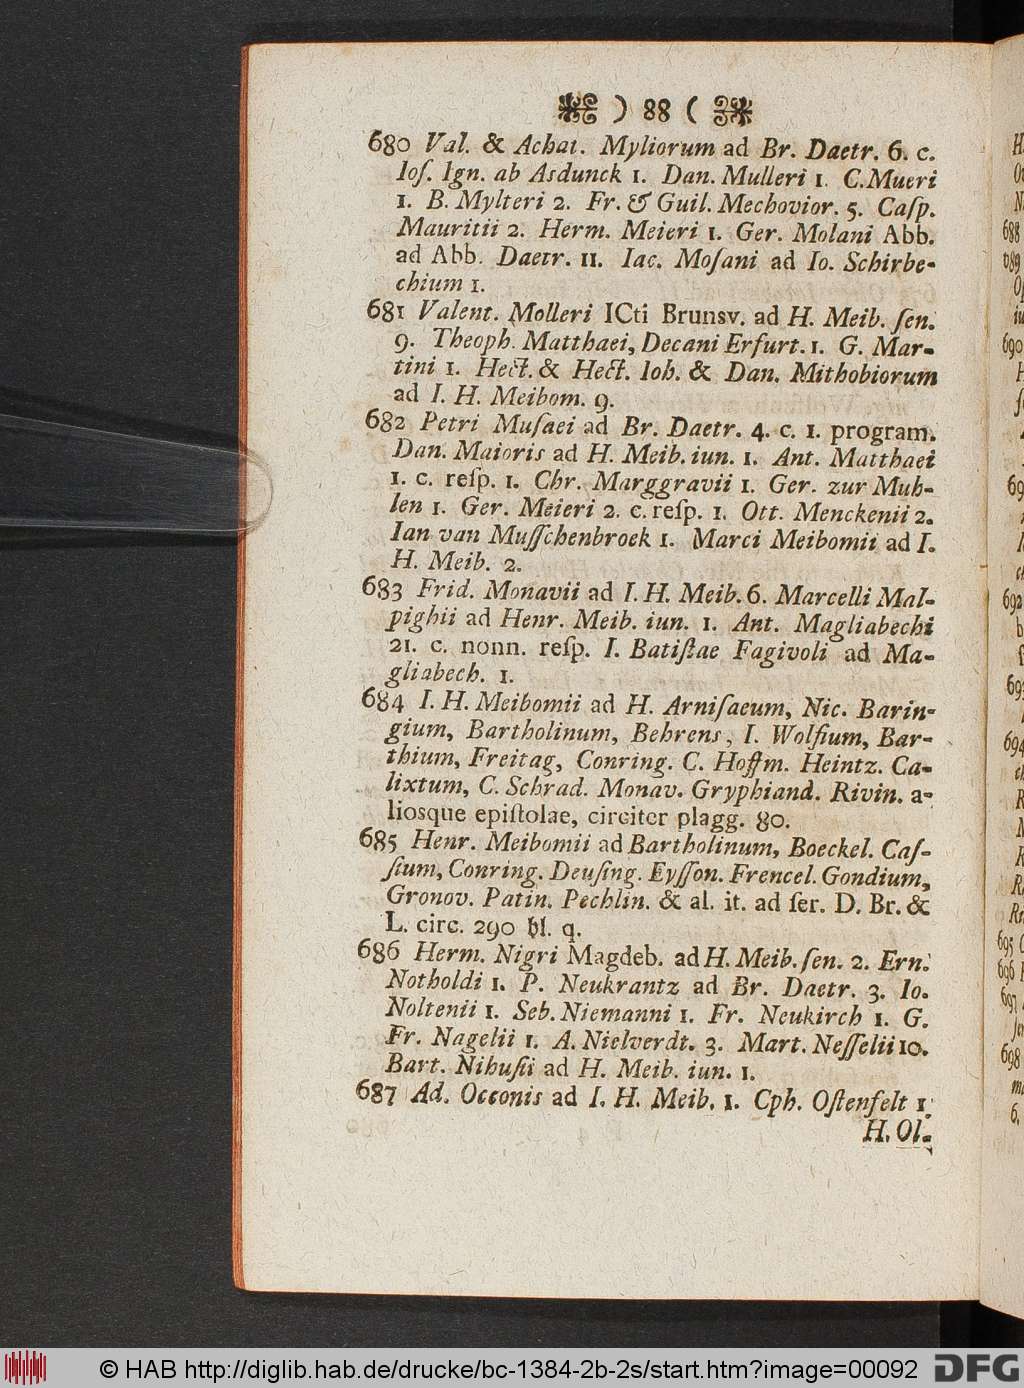 ) 88 (
680 Val. & Achat. Myliorum ad Br. Daetr. 6. c.
Ioſ. Ign. ab Asdunck 1. Dan. Mulleri 1. C. Mueri
1. B. Mylteri 2. Fr. & Guil. Mechovior. 5. Caſp.
Mauritii 2. Herm. Meieri 1. Ger. Molani Abb.
ad Abb. Daetr. 11. Iac. Moſani ad Io. Schirbe-
chium 1.
681 Valent. Molleri ICti Brunsv. ad H. Meib. ſen.
9. Theoph. Matthaei, Decani Erfurt. 1. G. Mar-
tini 1. Hect. & Hect. Ioh. & Dan. Mithobiorum
ad I. H. Meibom. 9.
682 Petri Muſaei ad Br. Daetr. 4. c. 1. program.
Dan. Maioris ad H. Meib. iun. 1. Ant. Matthaei
1. c. reſp. 1. Chr. Marggravii 1. Ger. zur Muh-
len 1. Ger. Meieri 2. c. reſp. 1. Ott. Menckenii 2.
Ian van Muſſchenbroek 1. Marci Meibomii ad I.
H. Meib. 2.
683 Frid. Monavii ad I. H. Meib. 6. Marcelli Mal-
pighii ad Henr. Meib. iun. 1. Ant. Magliabechi
21. c. nonn. reſp. I. Batiſtae Fagivoli ad Ma-
gliabech. 1.
684 I. H. Meibomii ad H. Arniſaeum, Nic. Barin-
gium, Bartholinum, Behrens, I. Wolfium, Bar-
thium, Freitag, Conring. C. Hoffm. Heintz. Ca-
lixtum, C. Schrad. Monav. Gryphiand. Rivin. a-
liosque epiſtolae, circiter plagg. 80.
685 Henr. Meibomii ad Bartholinum, Boeckel. Caſ-
ſium, Conring. Deuſing. Eyſſon. Frencel. Gondium,
Gronov. Patin. Pechlin. & al. it. ad ſer. D. Br. &
L. circ. 290 bl. q.
686 Herm. Nigri Magdeb. ad H. Meib. ſen. 2. Ern.
Notholdi 1. P. Neukrantz ad Br. Daetr. 3. Io.
Noltenii 1. Seb. Niemanni 1. Fr. Neukirch 1. G.
Fr. Nagelii 1. A. Nielverdt. 3. Mart. Neſſelii 10.
Bart. Nihuſii ad H. Meib. iun. 1.
687 Ad. Occonis ad I. H. Meib. 1. Cph. Oſtenfelt 1
H. Ol-
688
690
692
693
694
695
696
697
698
6.
© HAB http://diglib.hab.de/drucke/bc-1384-2b-2s/start.htm?image=00092
DFG